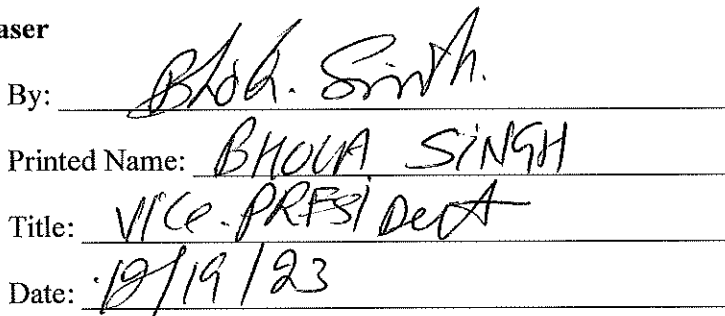 aser
By: Bhola. Singh.
Printed Name: BHOLA SINGH
Title: Vice-PRESIDent
Date: 12/19/23